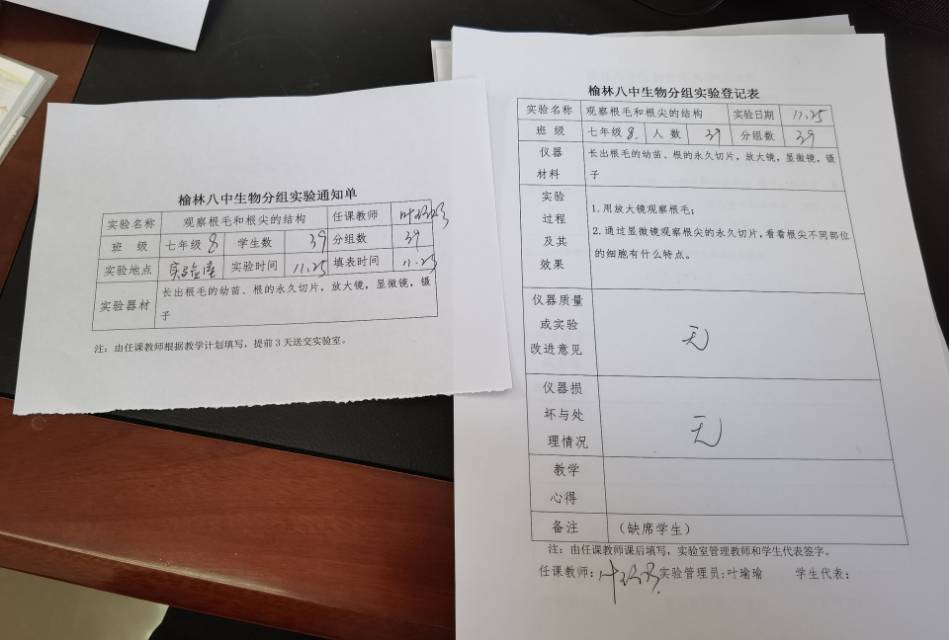 榆林八中生物分组实验通知单
实验名称 观察根毛和根尖的结构 任课教师
班 级 七年级 8 学生数 39 分组数 39
实验地点 实验室 实验时间 11.25 填表时间 11.25
实验器材 长出根毛的幼苗、根的永久切片,放大镜,显微镜,镊
子
注:由任课教师根据教学计划填写,提前3天送交实验室。
榆林八中生物分组实验登记表
实验名称 观察根毛和根尖的结构 实验日期 11.25
班 级 七年级 8. 人 数 39 分组数 39
仪器 材料 长出根毛的幼苗、根的永久切片,放大镜,显微镜,镊
子
实验
过程
及其
效果
1.用放大镜观察根毛;
2.通过显微镜观察根尖的永久切片,看看根尖不同部位
的细胞有什么特点。
仪器质量
或实验
改进意见
无
仪器损
坏与处
理情况
无
教学
心得
备注 (缺席学生)
注:由任课教师课后填写,实验室管理教师和学生代表签字。
任课教师: 实验管理员:叶瑜瑜 学生代表: